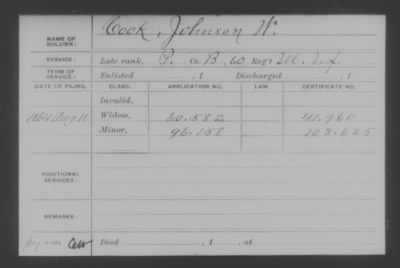 NAME OF SOLDIER: Cook, Johnson W.
SERVICE: Late rank, P. Co. B, 60 Reg't Ill. Inf.
TERM OF SERVICE: Enlisted , 1 Discharged , 1
DATE OF FILING. CLASS. APPLICATION NO. LAW. CERTIFICATE NO.
Invalid,
1864 Aug 11 Widow, 60.582 41.960
Minor, 96.158 103.625
ADDITIONAL SERVICES:
REMARKS:
Died , 1 , at